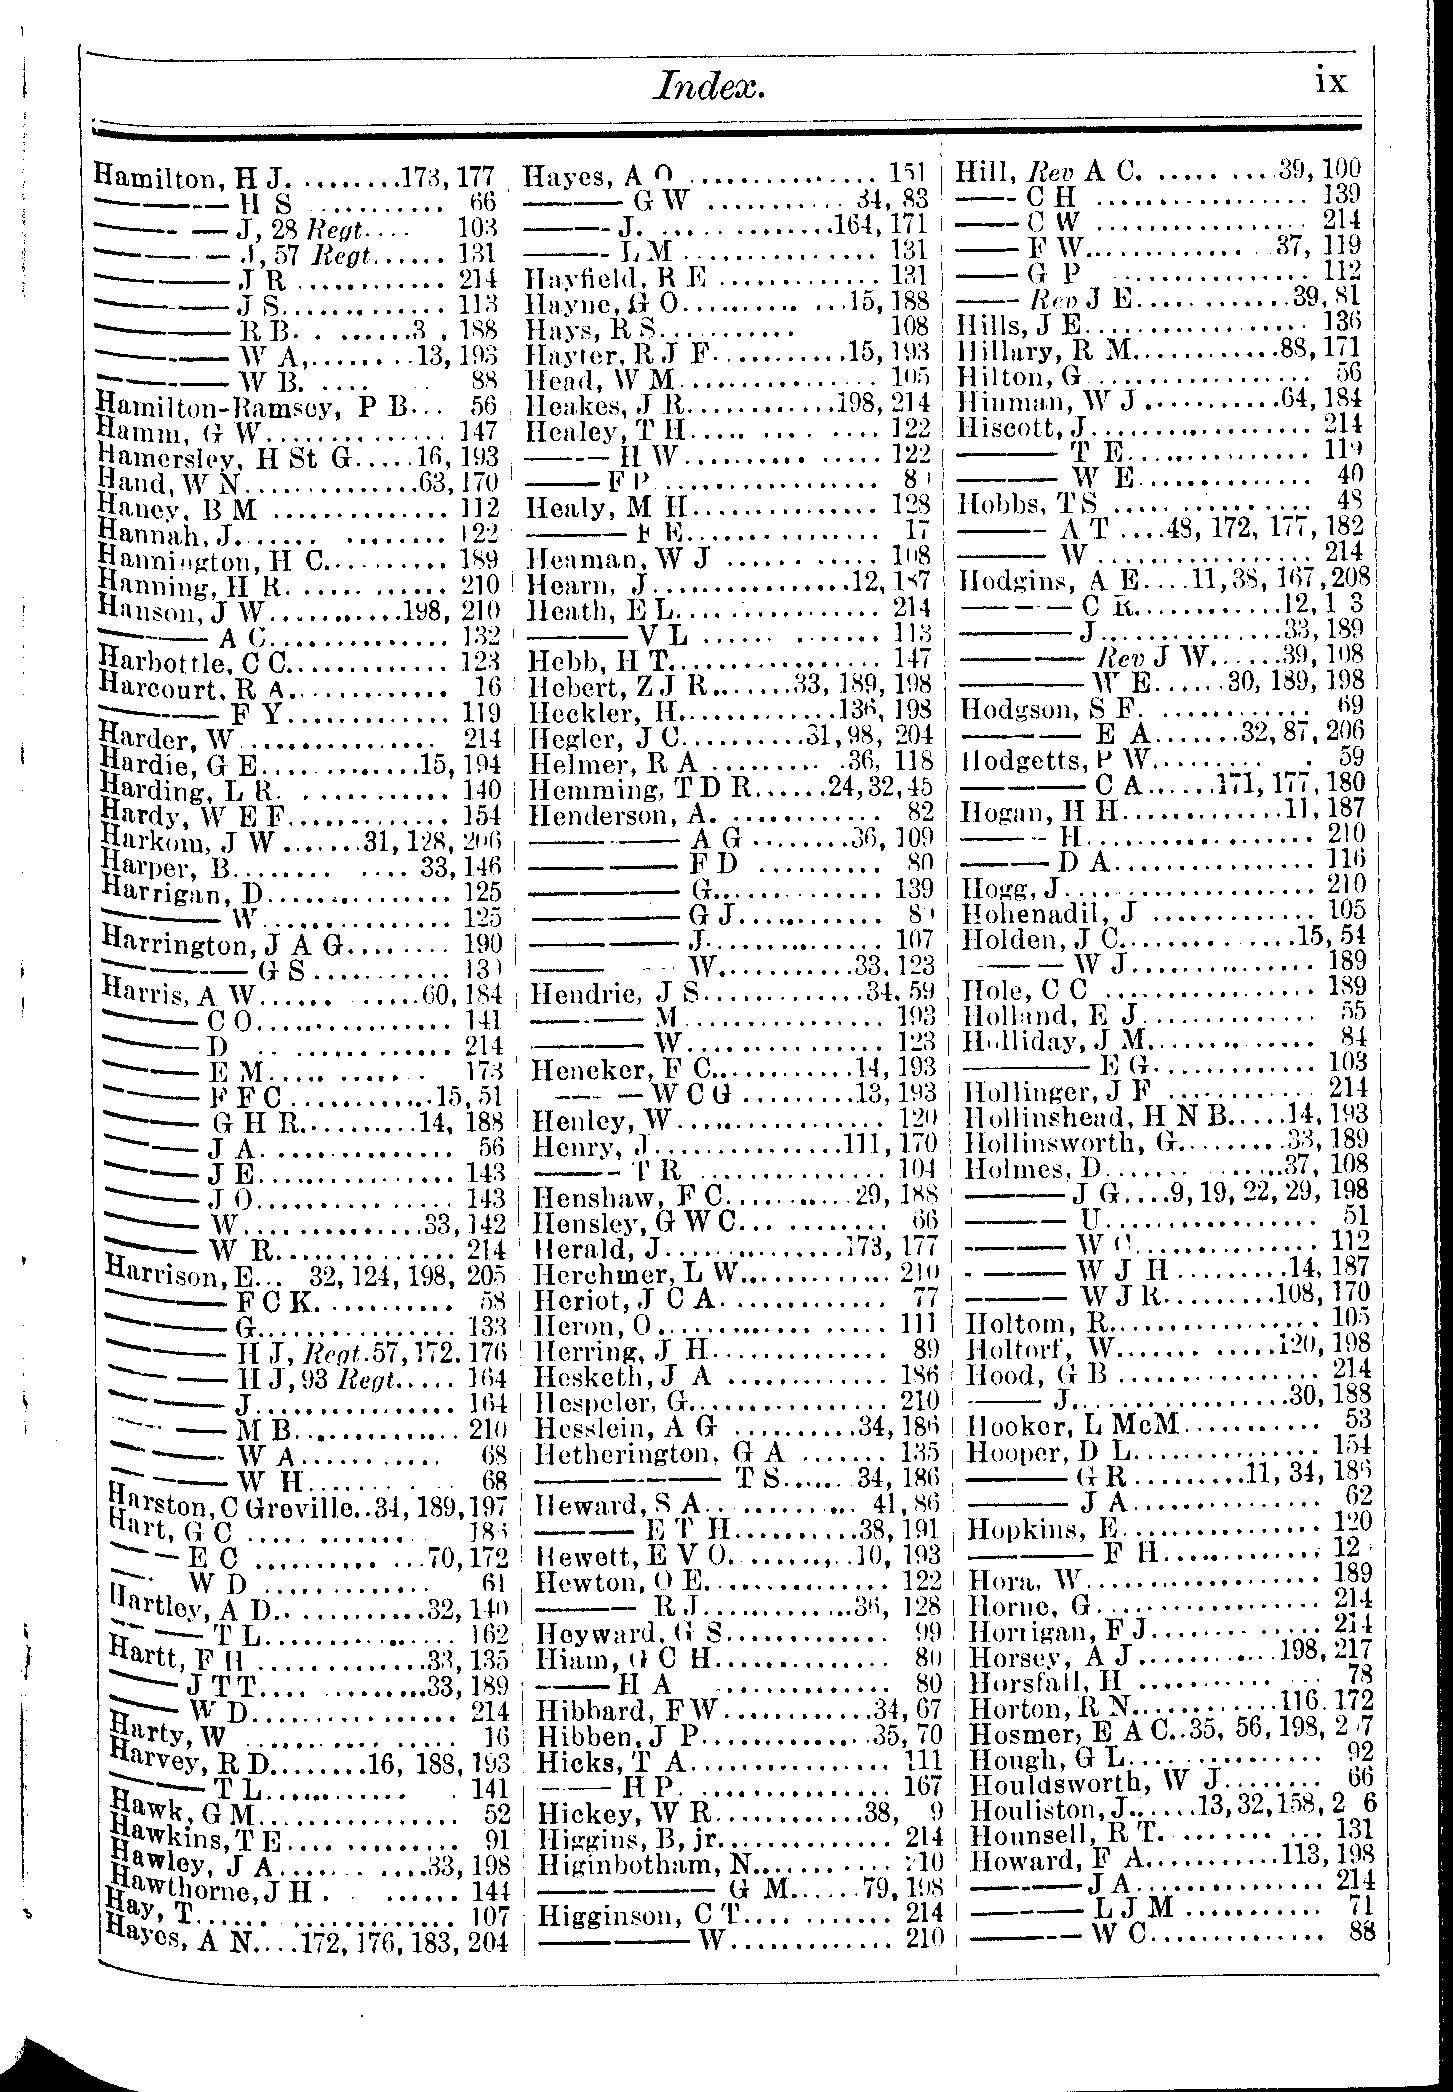 Index.
ix
Hamilton, H J. ........173, 177
———— H S ........... 66
———— J, 28 Regt.... 103
———— J, 57 Regt...... 131
———— J R ............ 214
———— J S.............. 113
———— R B. . ....... , 188
———— W A,........13, 193
———— W B. .... .. 88
Hamilton-Ramsey, P B... 56
Hamm, G W.............. 147
Hamersley, H St G.....16, 193
Hand, W N..............63, 170
Haney, B M .............. 112
Hannah, J....... ........ 122
Hannington, H C.......... 189
Hanning, H R. ..... ...... 210
Hanson, J W ..........198, 210
———— A C.............. 132
Harbottle, C C............ 123
Harcourt, R A............. 16
———— F Y............. 119
Harder, W ............... 214
Hardie, G E.............15, 194
Harding, L R. ............ 140
Hardy, W E F............. 154
Harkom, J W .......31, 128, 206
Harper, B........ .... 33, 146
Harrigan, D............... 125
———— W............... 125
Harrington, J A G........ 190
———— G S...........
Harris, A W...... ......60, 184
——— C O................ 141
——— D .. ............. 214
——— E M..... ....... . 173
——— F F C ............15, 51
——— G H R..........14, 188
——— J A. .............. 56
——— J E................ 143
——— J O................ 143
——— W...............33, 142
——— W R.............. 214
Harrison, E... 32, 124, 198, 205
———— F C K. .......... 58
———— G................ 133
———— H J, Regt.57, 172. 176
———— H J, 93 Regt..... 164
———— J................ 164
———— M B............. 210
———— W A........... 68
———— W H............ 68
Harston, C Greville..34, 189, 197
Hart, G C .............
—— E C .......... ...70, 172
—— W D ............. 61
Hartley, A D.. ..........32, 140
——— T L.............. 162
Hartt, F H..............33, 135
——— J T T.... .........33, 189
——— W D................ 214
Harty, W ........... ..... 16
Harvey, R D........16, 188, 193
——— T L............ . 141
Hawk, G M................ 52
Hawkins, T E.... ......... 91
Hawley, J A..... . .....33, 198
Hawthorne, J H . ...... 144
Hay, T...... ............. 107
Hayes, A N....172, 176, 183, 204
Hayes, A O .............. 151
——— G W ........... 34, 83
——— J. ... .............164, 171
——— L M ............... 131
Hayfield, R E ............ 131
Hayne, G O.......... ...15, 188
Hays, R S........... 108
Hayter, R J F...........15, 193
Head, W M............... 105
Heakes, J R............198, 214
Healey, T H..... .... .... 122
——— H W......... ..... 122
——— F P.................
Healy, M H............... 128
——— F E................ 17
Heaman, W J ............ 108
Hearn, J................12, 187
Heath, E L............... 214
——— V L ...... ....... 113
Hebb, H T................ 147
Hebert, Z J R.......33, 189, 198
Heckler, H.............136, 198
Hegler, J C..........31, 98, 204
Helmer, R A ......... .36, 118
Hemming, T D R......24, 32, 45
Henderson, A. ........... 82
———— A G ........36, 109
———— F D .......... 80
———— G............. 139
———— G J...........
———— J.............. 107
———— W...........33, 123
Hendrie, J S.............34, 59
———— M............... 193
———— W............... 123
Heneker, F C...........14, 193
———— W C G .........13, 193
Henley, W................. 120
Henry, J................111, 170
——— T R ............... 104
Henshaw, F C...........29, 188
Hensley, G W C... ........ 66
Herald, J...............173, 177
Herchmer, L W............ 210
Heriot, J C A............. 77
Heron, O................. 111
Herring, J H.............. 89
Hesketh, J A ............ 186
Hespeler, G............... 210
Hesslein, A G ..........34, 186
Hetherington, G A ....... 135
———— T S...... 34, 186
Heward, S A.. .......... 41, 86
——— E T H.........38, 191
Hewett, E V O..........10, 193
Hewton, O E.............. 122
——— R J............36, 128
Heyward, G S............. 99
Hiam, G C H.............. 80
——— H A ............. 80
Hibbard, F W............34, 67
Hibben, J P.............35, 70
Hicks, T A................ 111
——— H P. .............. 167
Hickey, W R...........38,
Higgins, B, jr............. 214
Higinbotham, N...........
———— G M......79, 198
Higginson, C T.... ....... 214
———— W............. 210
Hill, Rev A C. ..... ....39, 100
—— C H ................. 139
—— C W ................ 214
—— F W.............. 37, 119
—— G P ............... 112
—— Rev J E............39, 81
Hills, J E................. 136
Hillary, R M............88, 171
Hilton, G................. 56
Hinman, W J ...........64, 184
Hiscott, J................. 214
——— T E...............
——— W E............. 40
Hobbs, T S ................ 48
——— A T ....48, 172, 177, 182
——— W ................ 214
Hodgins, A E....11, 38, 167, 208
———— C R............12,
———— J...............33, 189
———— Rev J W......39, 108
———— W E......30, 189, 198
Hodgson, S F. ............ 69
———— E A.......32, 87, 206
Hodgetts, P W......... . 59
———— C A......171, 177, 180
Hogan, H H.............11, 187
——— H.................. 210
——— D A................ 116
Hogg, J................... 210
Hohenadil, J ............. 105
Holden, J C..............15, 54
——— W J............... 189
Hole, C C ................ 189
Holland, E J.............. 55
Holliday, J M............. 84
———— E G............. 103
Hollinger, J F ............ 214
Hollinshead, H N B.....14, 193
Hollinsworth, G.........33, 189
Holmes, D....... .......37, 108
——— J G....9, 19, 22, 29, 198
——— U................. 51
——— W C............... 112
——— W J H .........14, 187
——— W J R.........108, 170
Holtom, R................. 105
Holtorf, W...... ......120, 198
Hood, G B ................ 214
—— J..................30, 188
Hooker, L McM........... 53
Hooper, D L............... 154
——— G R.........11, 34, 186
——— J A............... 62
Hopkins, E................ 120
———— F H.............
Hora, W................... 189
Horne, G.................. 214
Horrigan, F J............. 214
Horsey, A J...........198, 217
Horsfall, H .............. 78
Horton, R N...........116, 172
Hosmer, E A C..35, 56, 198,
Hough, G L............... 92
Houldsworth, W J........ 66
Houliston, J......13, 32, 158,
Hounsell, R T. ....... ... 131
Howard, F A...........113, 198
——— J A............... 214
——— L J M ........... 71
——— W C.............. 88